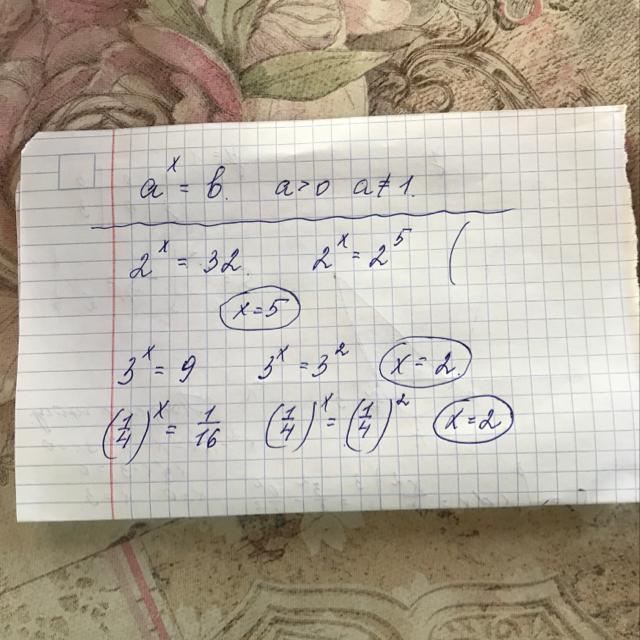 a^x = b. a>0 a≠1.
2^x = 32. 2^x = 2^5 (
x=5
3^x = 9 3^x = 3^2 x=2.
(1/4)^x = 1/16 (1/4)^x = (1/4)^2 x=2